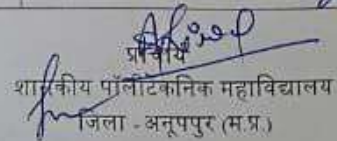 प्राचार्य
शासकीय पॉलीटेकनिक महाविद्यालय
जिला - अनूपपुर (म.प्र.)